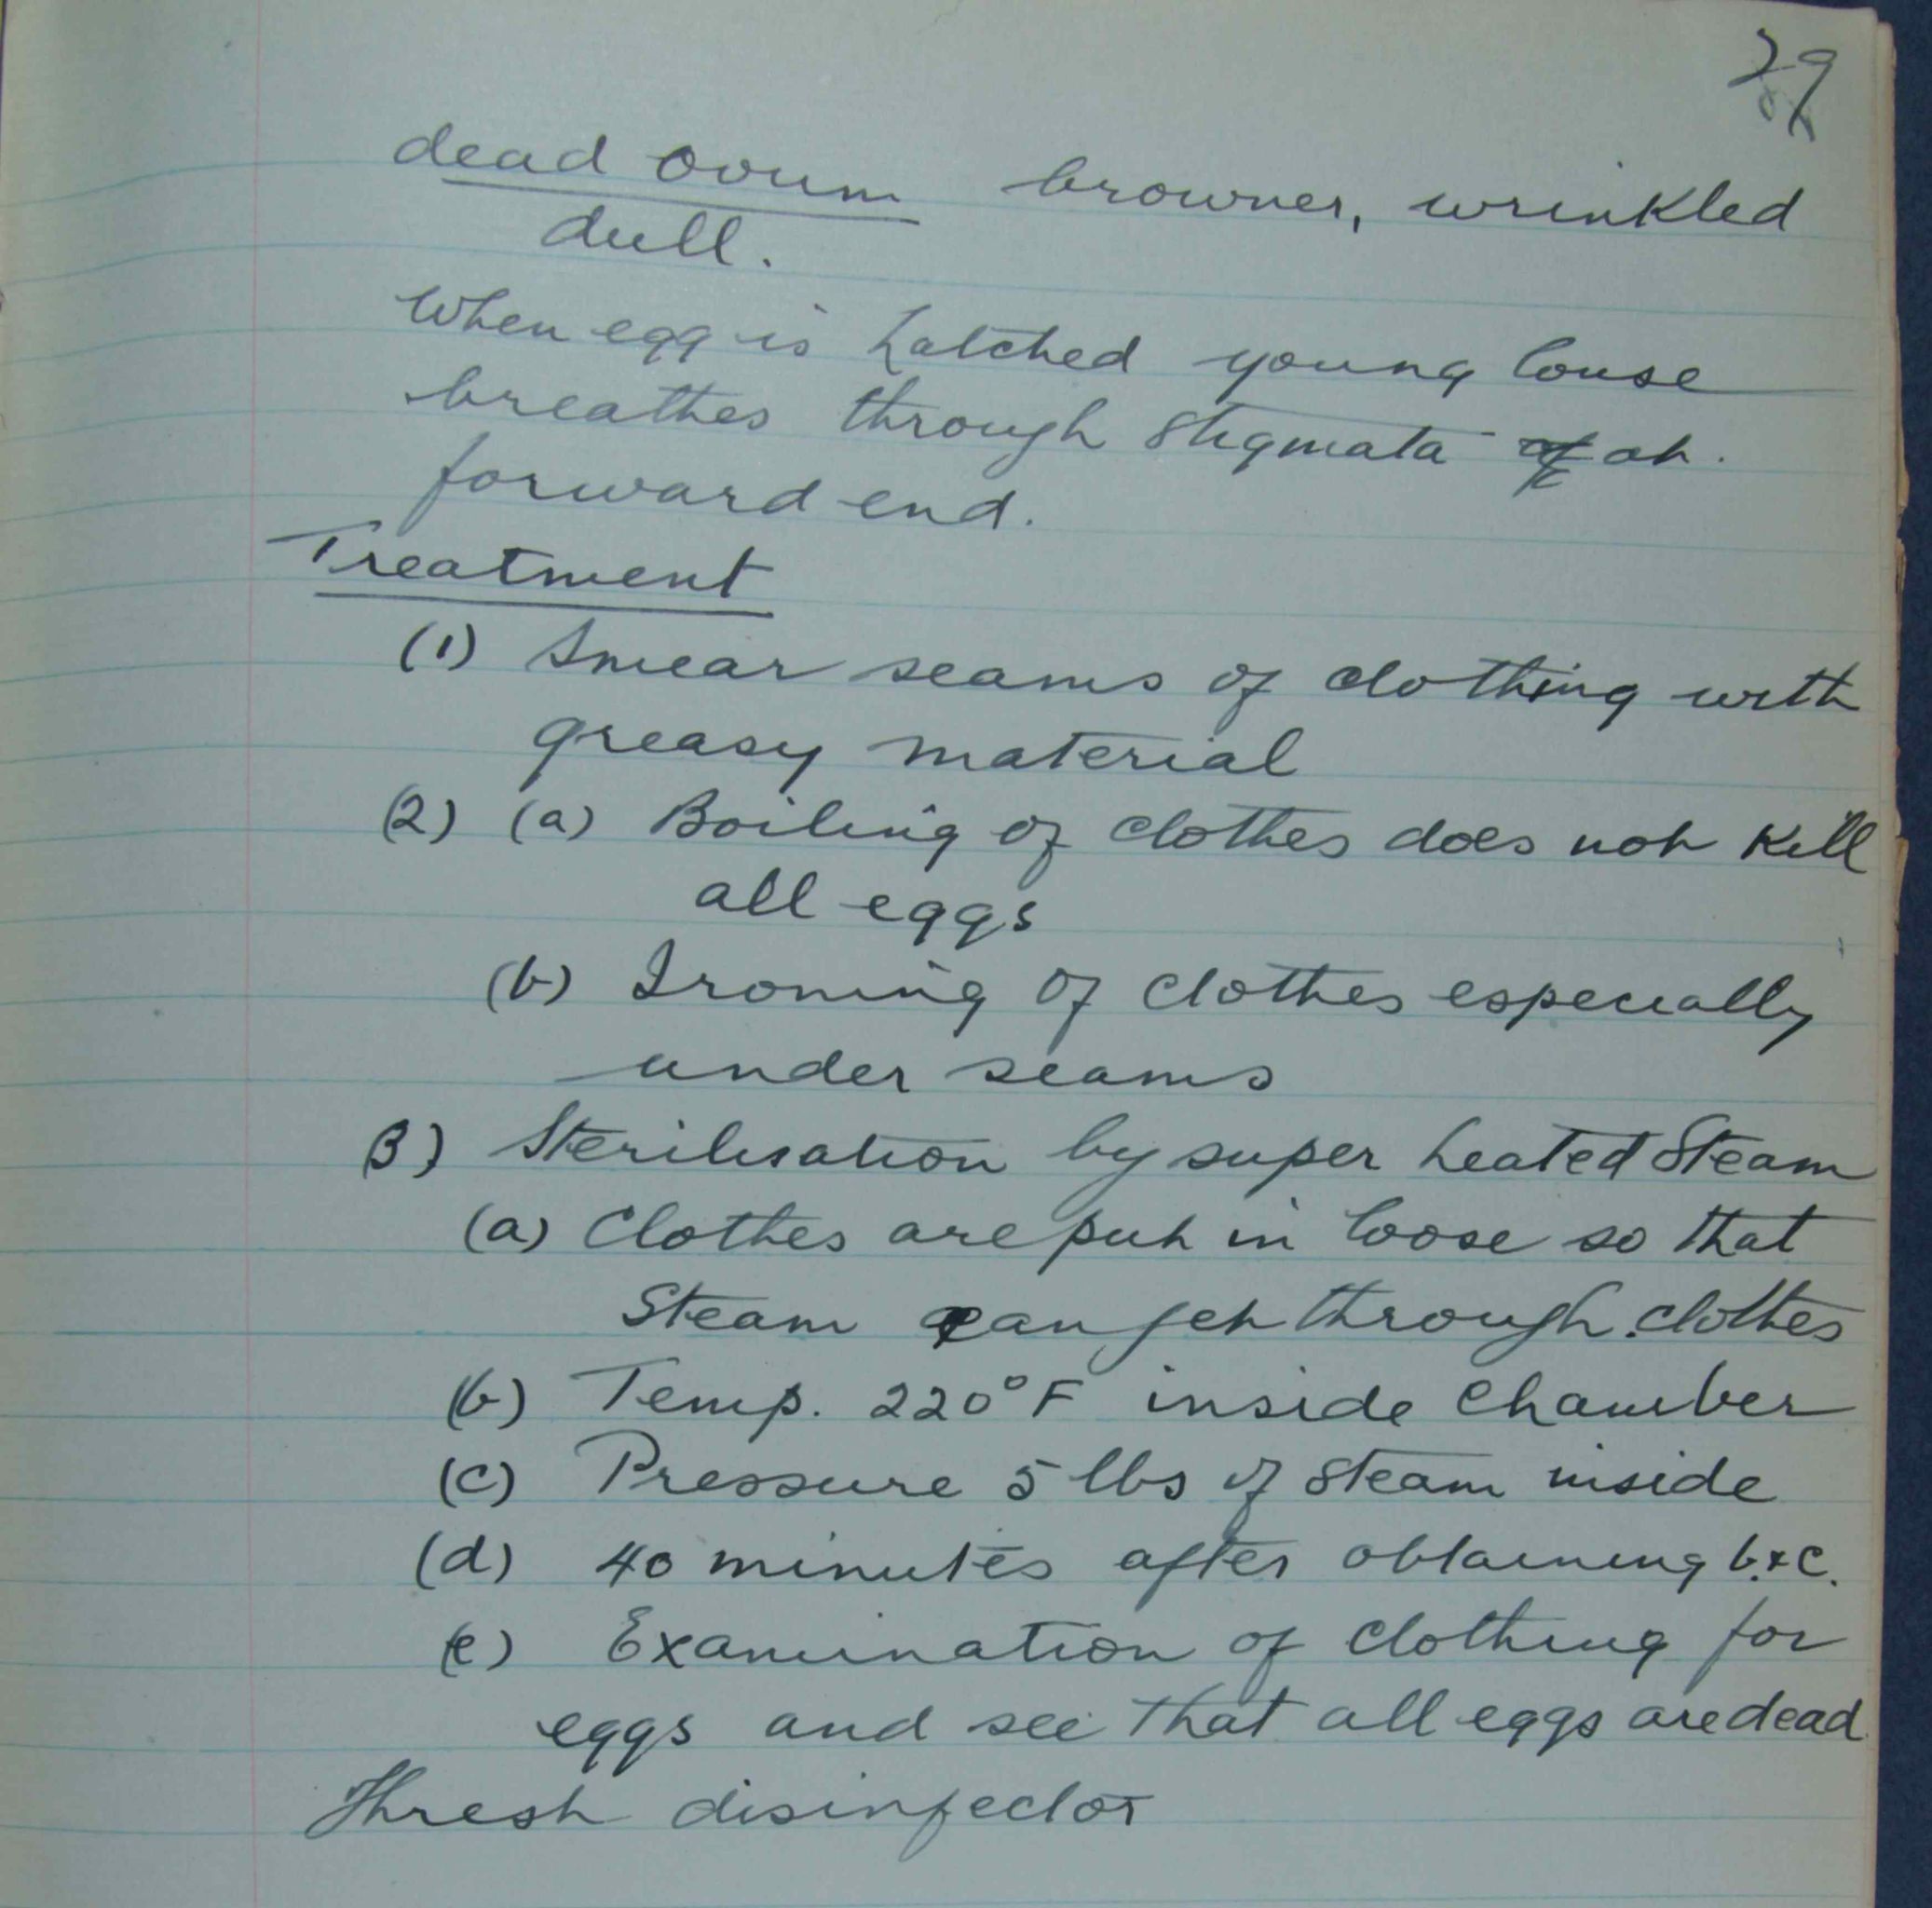 29
dead ovum browner, wrinkled
dull.
When egg is hatched young louse
breathes through stigmata of at
forward end.
Treatment
(1) Smear seams of clothing with
greasy material
(2) (a) Boiling of clothes does not kill
all eggs
(b) Ironing of clothes especially
under seams
(3) Sterilisation by super heated steam
(a) Clothes are put in loose so that
steam can get through clothes
(b) Temp. 220°F inside chamber
(c) Pressure 5 lbs of steam inside
(d) 40 minutes after obtaining b. + c.
(e) Examination of clothing for
eggs and see that all eggs are dead
Thresh disinfector